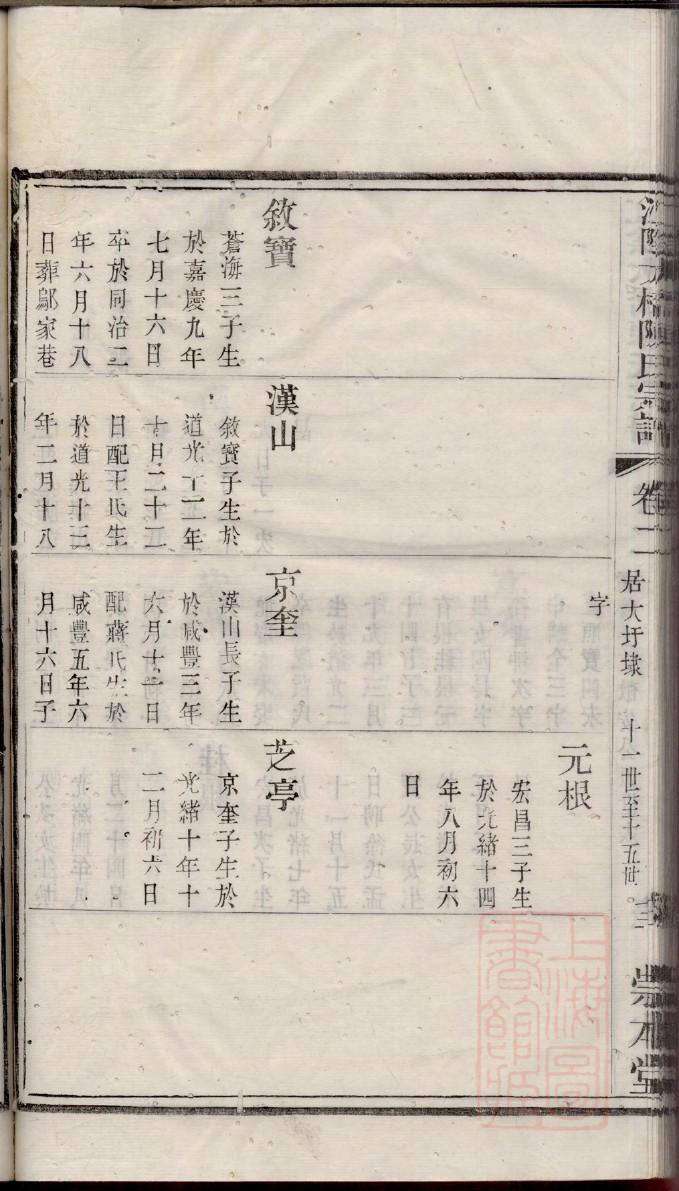 陳氏宗譜
卷二
居大圩埭
十一世至十五世
崇本堂
字
元根
宏昌三子生
於光緒十四
年八月初六
日
敘寶
蒼海三子生
於嘉慶九年
七月十六日
卒於同治二
年六月十八
日葬鄔家巷
漢山
敘寶子生於
道光十二年
十日二十二
日配王氏生
於道光十三
年二月十八
京奎
漢山長子生
於咸豐三年
六月十二日
配蔣氏生於
咸豐五年六
月十六日子
芝亭
京奎子生於
光緒十年十
二月初六日
上海圖書館藏